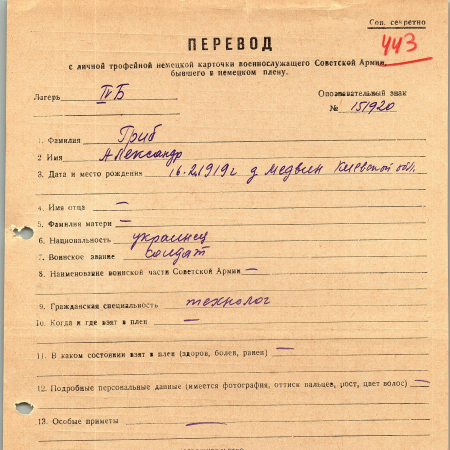 Сов. секретно
443
ПЕРЕВОД
с личной трофейной немецкой карточки военнослужащего Советской Армии,
бывшего в немецком плену.
Лагерь IVБ
Опознавательный знак
№ 151920
1. Фамилия Гриб
2 Имя Александр
3. Дата и место рождения 16.2.1919г д Медвин Киевской обл.
4. Имя отца —
5. Фамилия матери —
6. Национальность украинец
7. Воинское звание солдат
8. Наименование воинской части Советской Армии —
9. Гражданская специальность технолог
10. Когда и где взят в плен —
11. В каком состоянии взят в плен (здоров, болен, ранен) —
12. Подробные персональные данные (имеется фотография, оттиск пальцев, рост, цвет волос) —
13. Особые приметы —